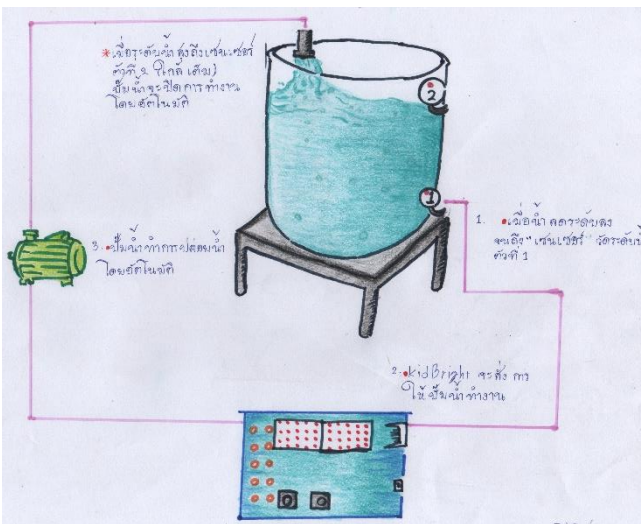 *เมื่อระดับน้ำสูงถึงเซนเซอร์
ตัวที่ 2 (ใกล้เต็ม)
ปั๊มน้ำจะปิดการทำงาน
โดยอัตโนมัติ
2
1
1. เมื่อน้ำลดระดับลง
จนถึง "เซนเซอร์" วัดระดับน้ำ
ตัวที่ 1
3. ปั๊มน้ำทำการปล่อยน้ำ
โดยอัตโนมัติ
2. KidBright จะสั่งการ
ให้ปั๊มน้ำทำงาน